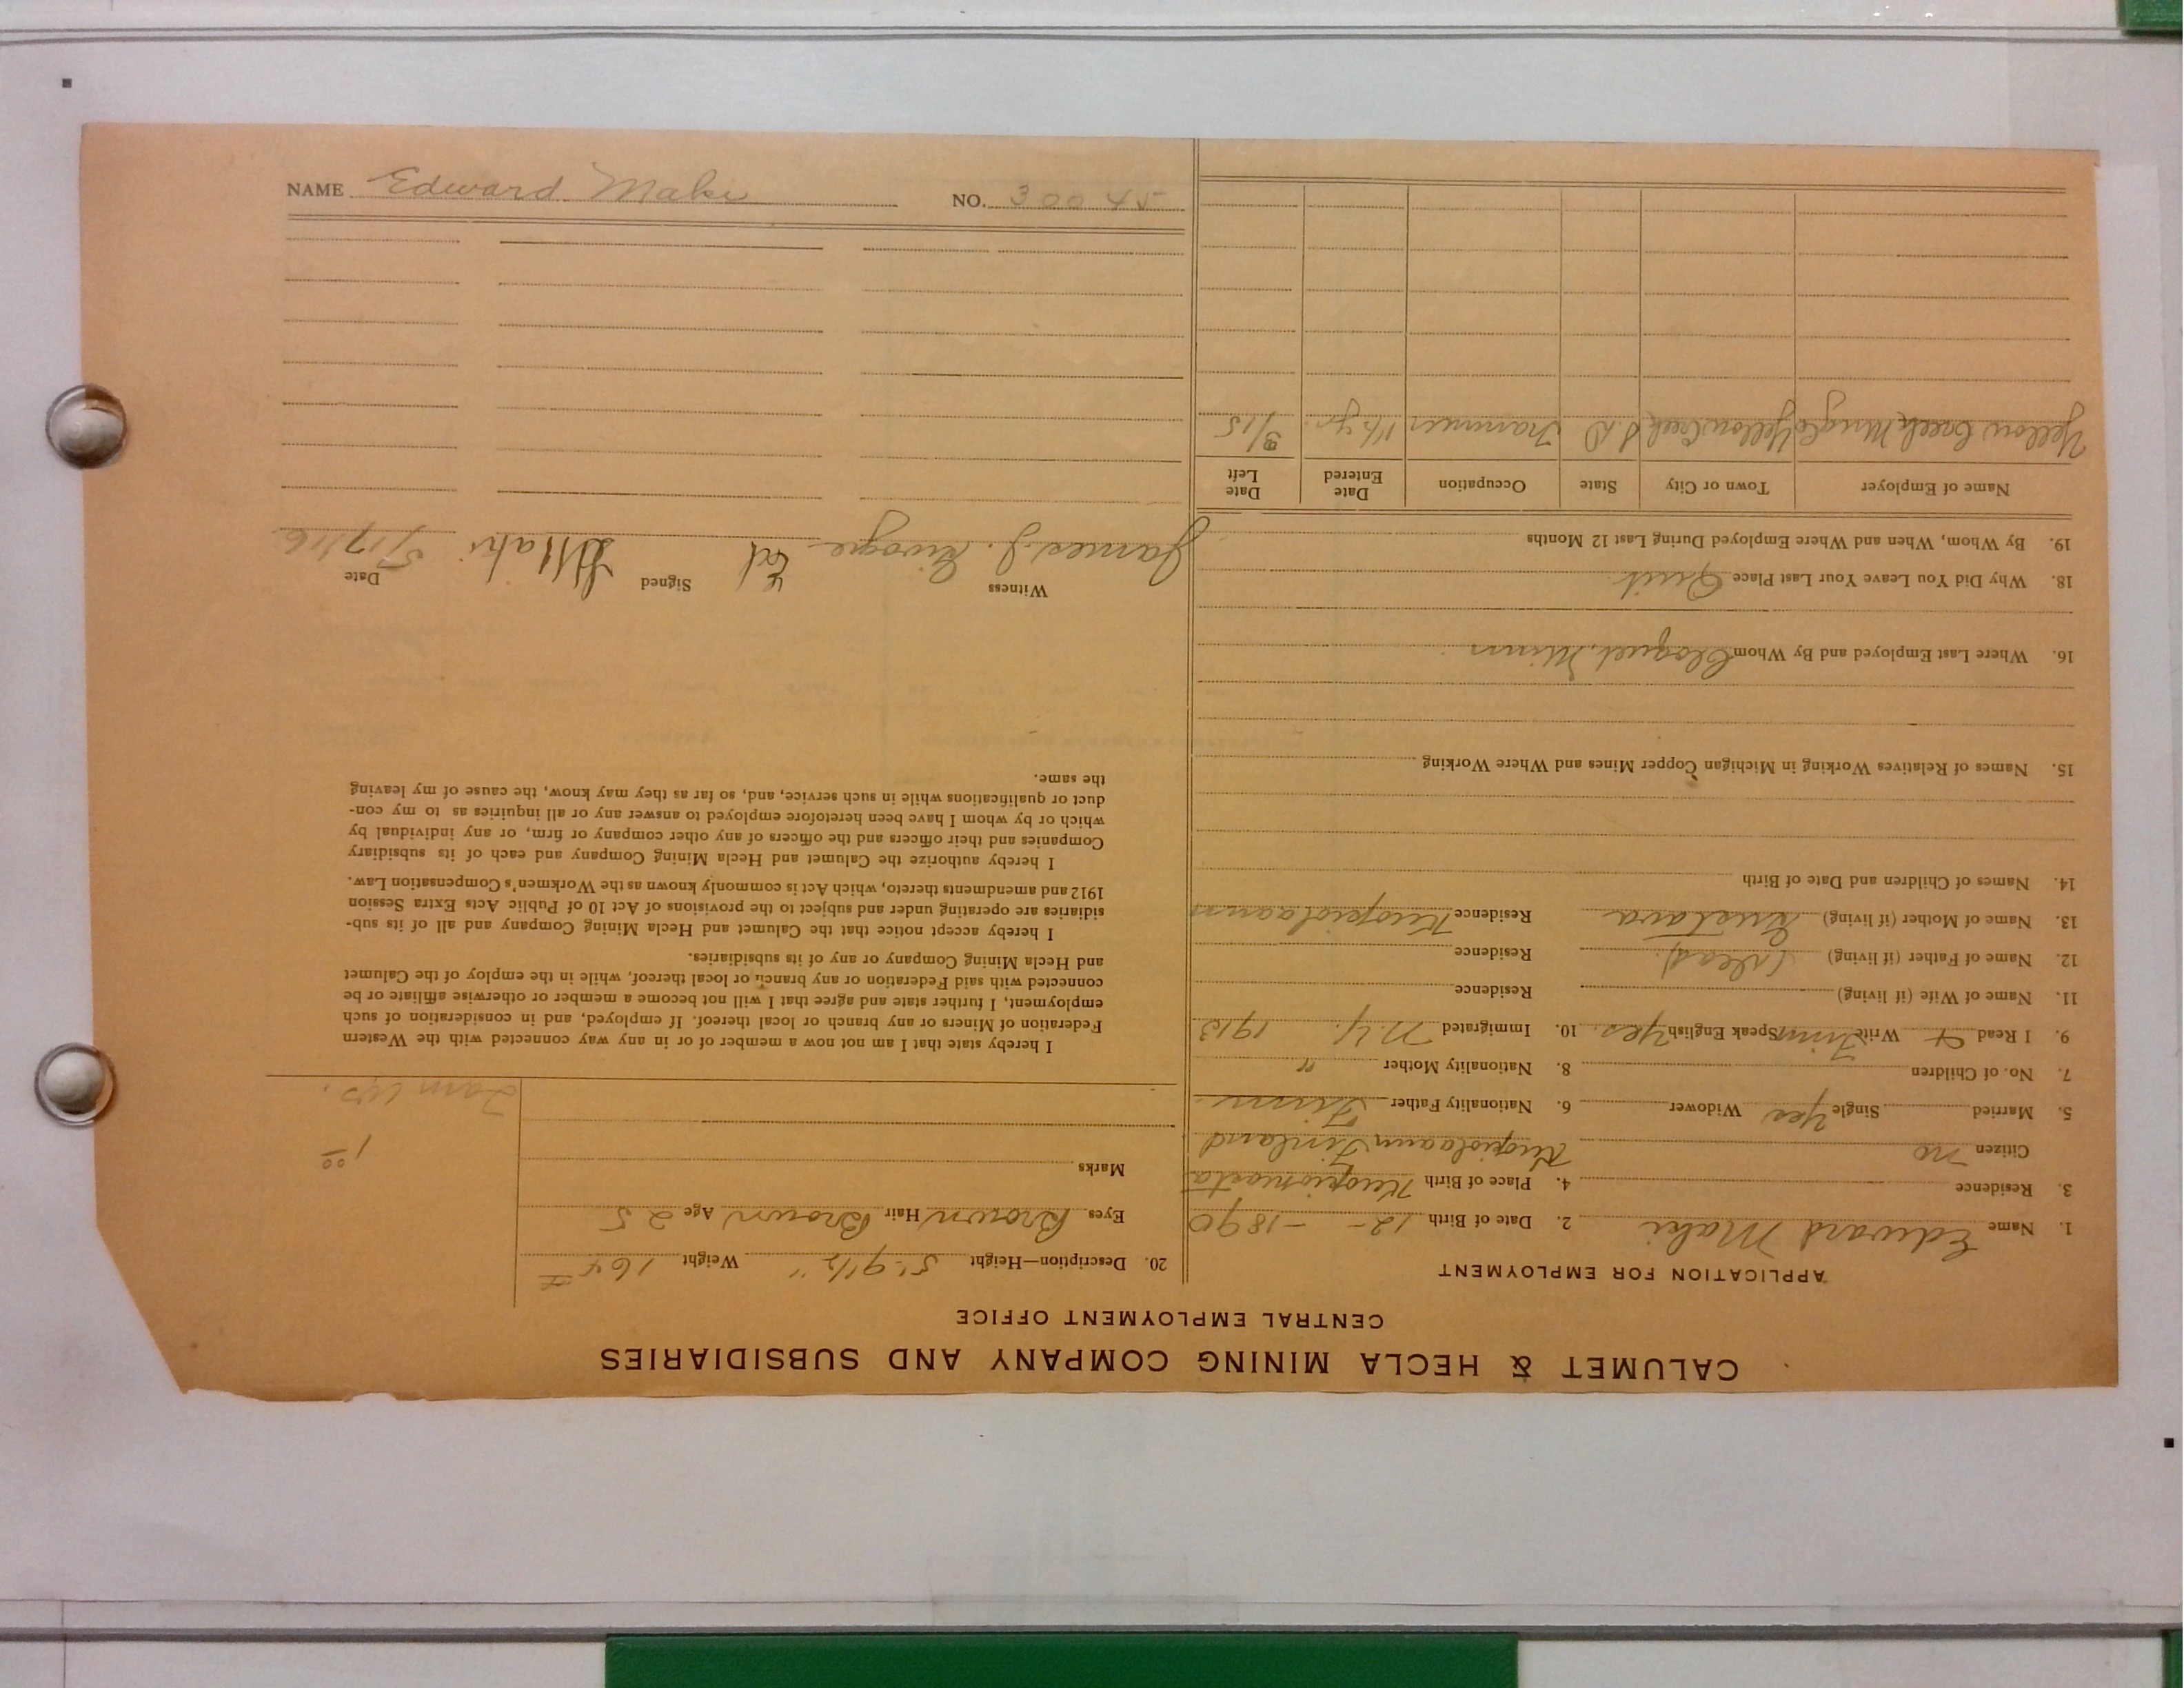 NAME Edward Maki NO. 30045
CALUMET & HECLA MINING COMPANY AND SUBSIDIARIES
CENTRAL EMPLOYMENT OFFICE
APPLICATION FOR EMPLOYMENT
1. Name Edward Maki 2. Date of Birth 12 - - 1890
3. Residence 4. Place of Birth
Citizen no Finland
5. Married Single Yes Widower 6. Nationality Father Finn
7. No. of Children 8. Nationality Mother "
9. I Read & Write Finn Speak English Yes 10. Immigrated N.Y. 1913
11. Name of Wife (if living) Residence
12. Name of Father (if living) (dead) Residence
13. Name of Mother (if living) Gustava Residence
14. Names of Children and Date of Birth
15. Names of Relatives Working in Michigan Copper Mines and Where Working
16. Where Last Employed and By Whom Cloquet, Minn
18. Why Did You Leave Your Last Place Quit
19. By Whom, When and Where Employed During Last 12 Months
Name of Employer Town or City State Occupation Date Entered Date Left
Yellow Creek Mng Co Yellow Creek S.D Trammer 1 1/2 yr.
20. Description—Height 5' 9 1/2" Weight 164 #
Eyes Brown Hair Brown Age 25
Marks
1 00
I hereby state that I am not now a member of or in any way connected with the Western
Federation of Miners or any branch or local thereof. If employed, and in consideration of such
employment, I further state and agree that I will not become a member or otherwise affiliate or be
connected with said Federation or any branch or local thereof, while in the employ of the Calumet
and Hecla Mining Company or any of its subsidiaries.
I hereby accept notice that the Calumet and Hecla Mining Company and all of its sub-
sidiaries are operating under and subject to the provisions of Act 10 of Public Acts Extra Session
1912 and amendments thereto, which Act is commonly known as the Workmen's Compensation Law.
I hereby authorize the Calumet and Hecla Mining Company and each of its subsidiary
Companies and their officers and the officers of any other company or firm, or any individual by
which or by whom I have been heretofore employed to answer any or all inquiries as to my con-
duct or qualifications while in such service, and, so far as they may know, the cause of my leaving
the same.
Witness Signed Date
James J. Ed Maki 5/17/16